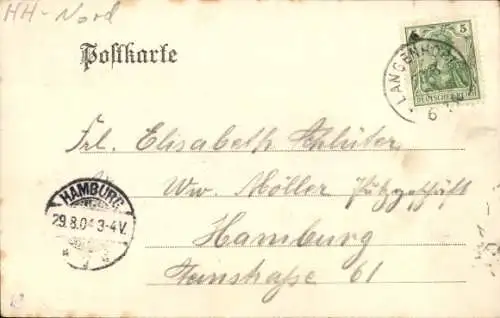 HH-Nord
Postkarte
5
LANGENHO
DEUTSCHES REICH
6
Frl. Elisabeth Schlüter
Ww. Möller Putzgeschäft
HAMBURG
29.8.04 3-4V.
Hamburg
Steinstraße 61